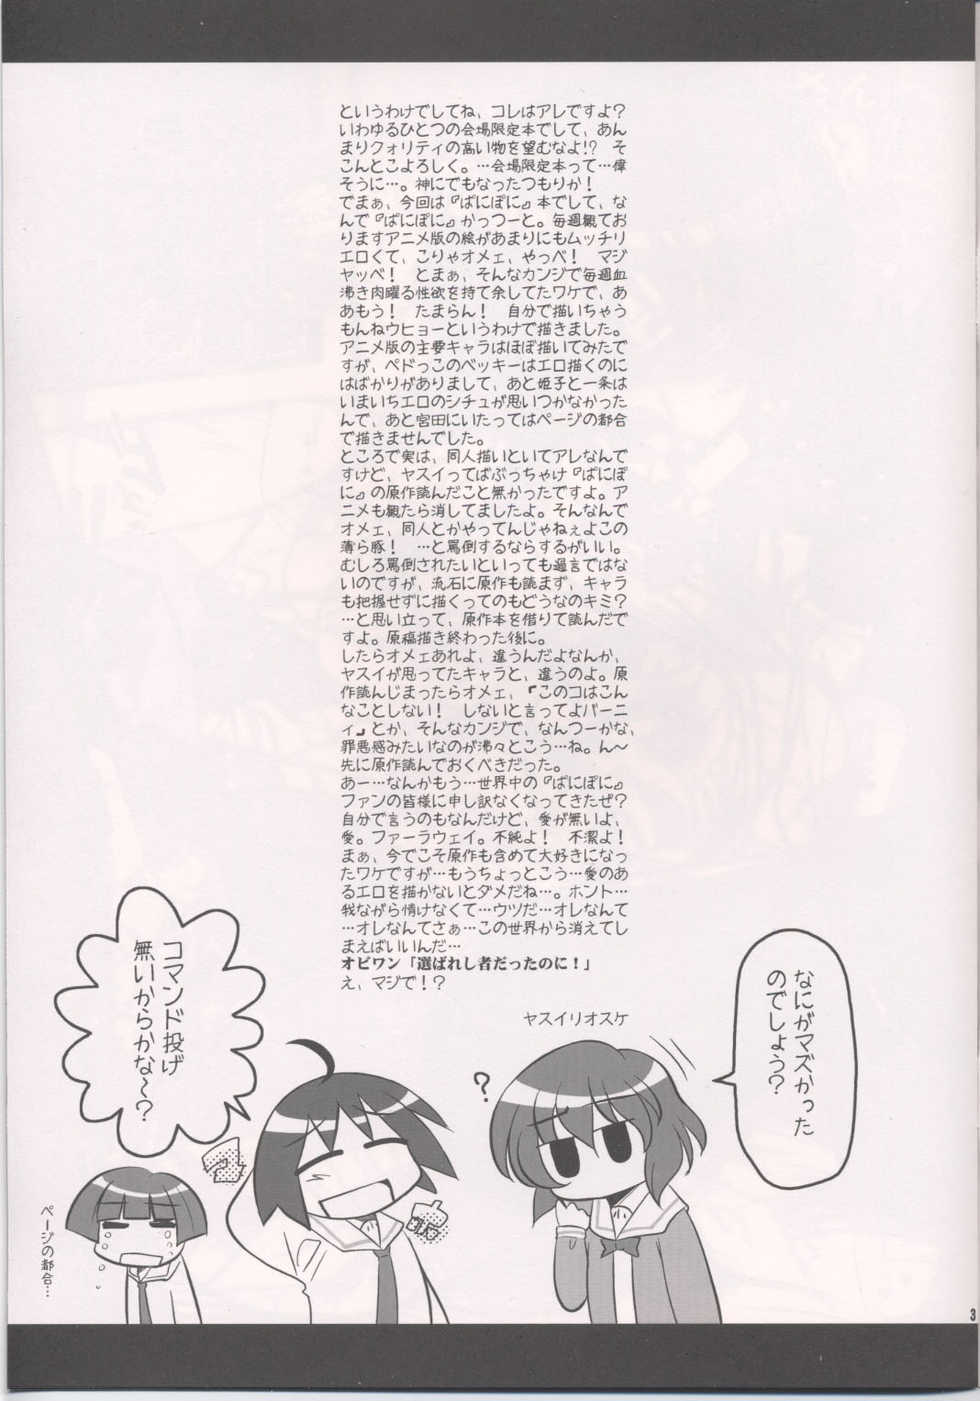 というわけでしてね、コレはアレですよ？
いわゆるひとつの会場限定本でして、あん
まりクォリティの高い物を望むなよ!?　そ
こんとこよろしく。…会場限定本って…偉
そうに…。神にでもなったつもりか！
でまぁ、今回は『ぱにぽに』本でして、な
んで『ぱにぽに』かっつーと。毎週観てお
りますアニメ版の絵があまりにもムッチリ
エロくて、こりゃオメェ、やっべ！　マジ
ヤッベ！　とまぁ、そんなカンジで毎週血
沸き肉躍る性欲を持て余してたワケで、あ
あもう！　たまらん！　自分で描いちゃう
もんねウヒョーというわけで描きました。
アニメ版の主要キャラはほぼ描いてみたで
すが、ペドっこのベッキーはエロ描くのに
はばかりがありまして、あと姫子と一条は
いまいちエロのシチュが思いつかなかった
んで、あと宮田にいたってはページの都合
で描きませんでした。
ところで実は、同人描いといてアレなんで
すけど、ヤスイってばぶっちゃけ『ぱにぽ
に』の原作読んだこと無かったですよ。ア
ニメも観たら消してましたよ。そんなんで
オメェ、同人とかやってんじゃねぇよこの
薄ら豚！　…と罵倒するならするがいい。
むしろ罵倒されたいといっても過言ではな
いのですが、流石に原作も読まず、キャラ
も把握せずに描くってのもどうなのキミ？
…と思い立って、原作本を借りて読んだで
すよ。原稿描き終わった後に。
したらオメェあれよ、違うんだよなんか、
ヤスイが思ってたキャラと、違うのよ。原
作読んじまったらオメェ、「このコはこん
なことしない！　しないと言ってよバーニ
ィ」とか、そんなカンジで、なんつーかな、
罪悪感みたいなのが沸々とこう…ね。ん～
先に原作読んでおくべきだった。
あー…なんかもう…世界中の『ぱにぽに』
ファンの皆様に申し訳なくなってきたぜ？
自分で言うのもなんだけど、愛が無いよ、
愛。ファーラウェイ。不純よ！　不潔よ！
まぁ、今でこそ原作も含めて大好きになっ
たワケですが…もうちょっとこう…愛のあ
るエロを描かないとダメだね…。ホント…
我ながら情けなくて…ウツだ…オレなんて
…オレなんてさぁ…この世界から消えてし
まえばいいんだ…
オビワン「選ばれし者だったのに！」
え、マジで！？
ヤスイリオスケ
なにがマズかった
のでしょう？
？
コマンド投げ
無いからかな～？
ページの都合…
3